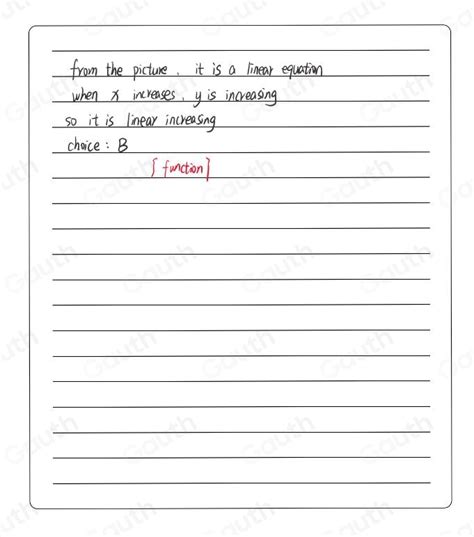 from the picture, it is a linear equation
when x increases, y is increasing
so it is linear increasing
choice : B
[function]